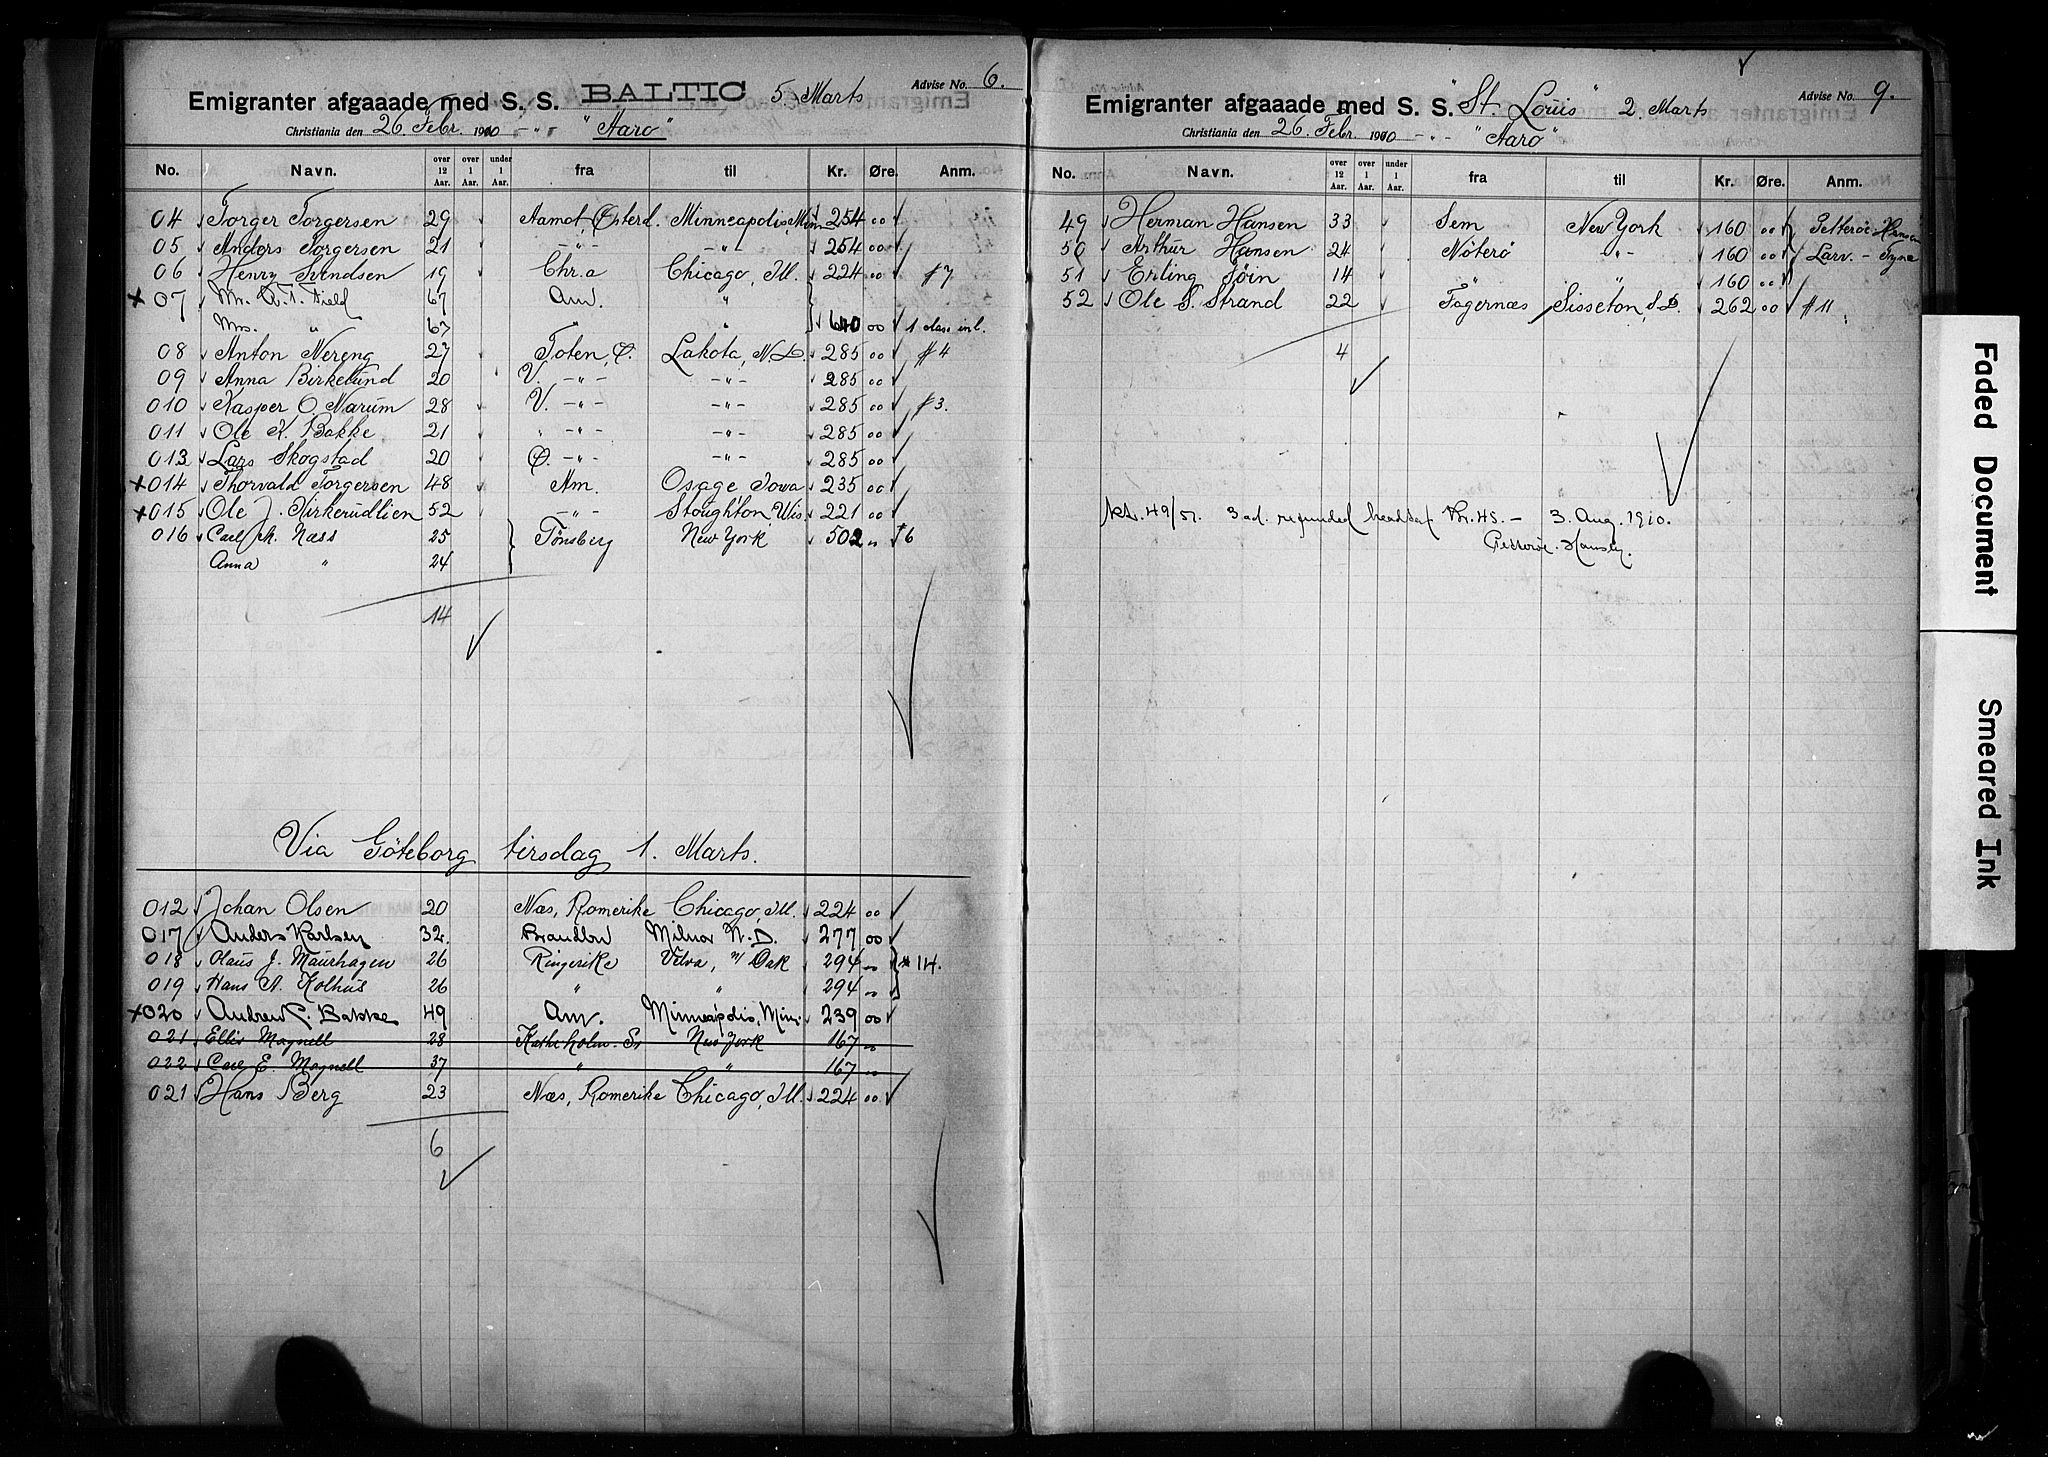 Advise No. 6.
Emigranter afgaaade med S. S. BALTIC 5. Marts
Christiania den 26. Febr. 1910 - " - "Aaro"
No. Navn. over 12 Aar. over 1 Aar. under 1 Aar. fra til Kr. Øre. Anm.
04 Torger Torgersen 29 Aamot, Østerd. Minneapolis, Minn 254 00
05 Anders Torgersen 21 - " - - " - 254 00
06 Henry Svendsen 19 Chr.a Chicago, Ill. 224 00 #7
x 07 Mr. A. T. Field 67 Am. "
Mrs. " 67 " 640 00 1 class inl.
08 Anton Nereng 27 Toten, Ø. Lakota, N.D. 285 00 #4
09 Anna Birkelund 20 V. - " - - " - 285 00
010 Kasper O. Narum 28 V. - " - - " - 285 00 #3.
011 Ole K. Bakke 21 " - " - - " - 285 00
013 Lars Skogstad 20 Ø. - " - - " - 285 00
x 014 Thorvald Torgersen 48 Am. Osage Iowa 235 00
x 015 Ole J. Kirkerudlien 52 - " - Stoughton, Wis 221 00
016 Carl A. Næss 25 Tönsberg New York 502 " #6
Anna " 24
14
Via Göteborg tirsdag 1. Marts.
012 Johan Olsen 20 Næs, Romerike Chicago, Ill. 224 00
017 Anders Karlsen 32. Brandbu Milnor N.D. 277 00
018 Olaus J. Maurhagen 26 Ringerike Velva, N Dak 294 " # 14.
019 Hans A. Kolhus 26 " " 294 "
x 020 Andrew C. Bakke 49 Am. Minneapolis, Min. 239 00
021 Ellis Magnell 28 Katheholm. Sv New York 167 "
022 Carl E. Magnell 37 " " 167 "
021 Hans Berg 23 Næs, Romerike Chicago, Ill. 224 00
6
Advise No. 9.
Emigranter afgaaade med S. S. "St. Louis" 2. Marts
Christiania den 26. Febr. 1910 - " - "Aaro"
No. Navn. over 12 Aar. over 1 Aar. under 1 Aar. fra til Kr. Øre. Anm.
49 Herman Hansen 33 Sem New York 160 00 Petterøe-Hansen
50 Arthur Hansen 24 Nöterö - " - 160 00 Larv. - Tyne
51 Erling Töin 14 " " 160 00
52 Ole T. Strand 22 Fagernæs Sisseton, S.D. 262 00 #11
4
Nkt. 49/51. 3 ad. refunded headtax Kr. 45. - 3. Aug. 1910.
Petterøe. Hansen.
Faded Document
Smeared Ink